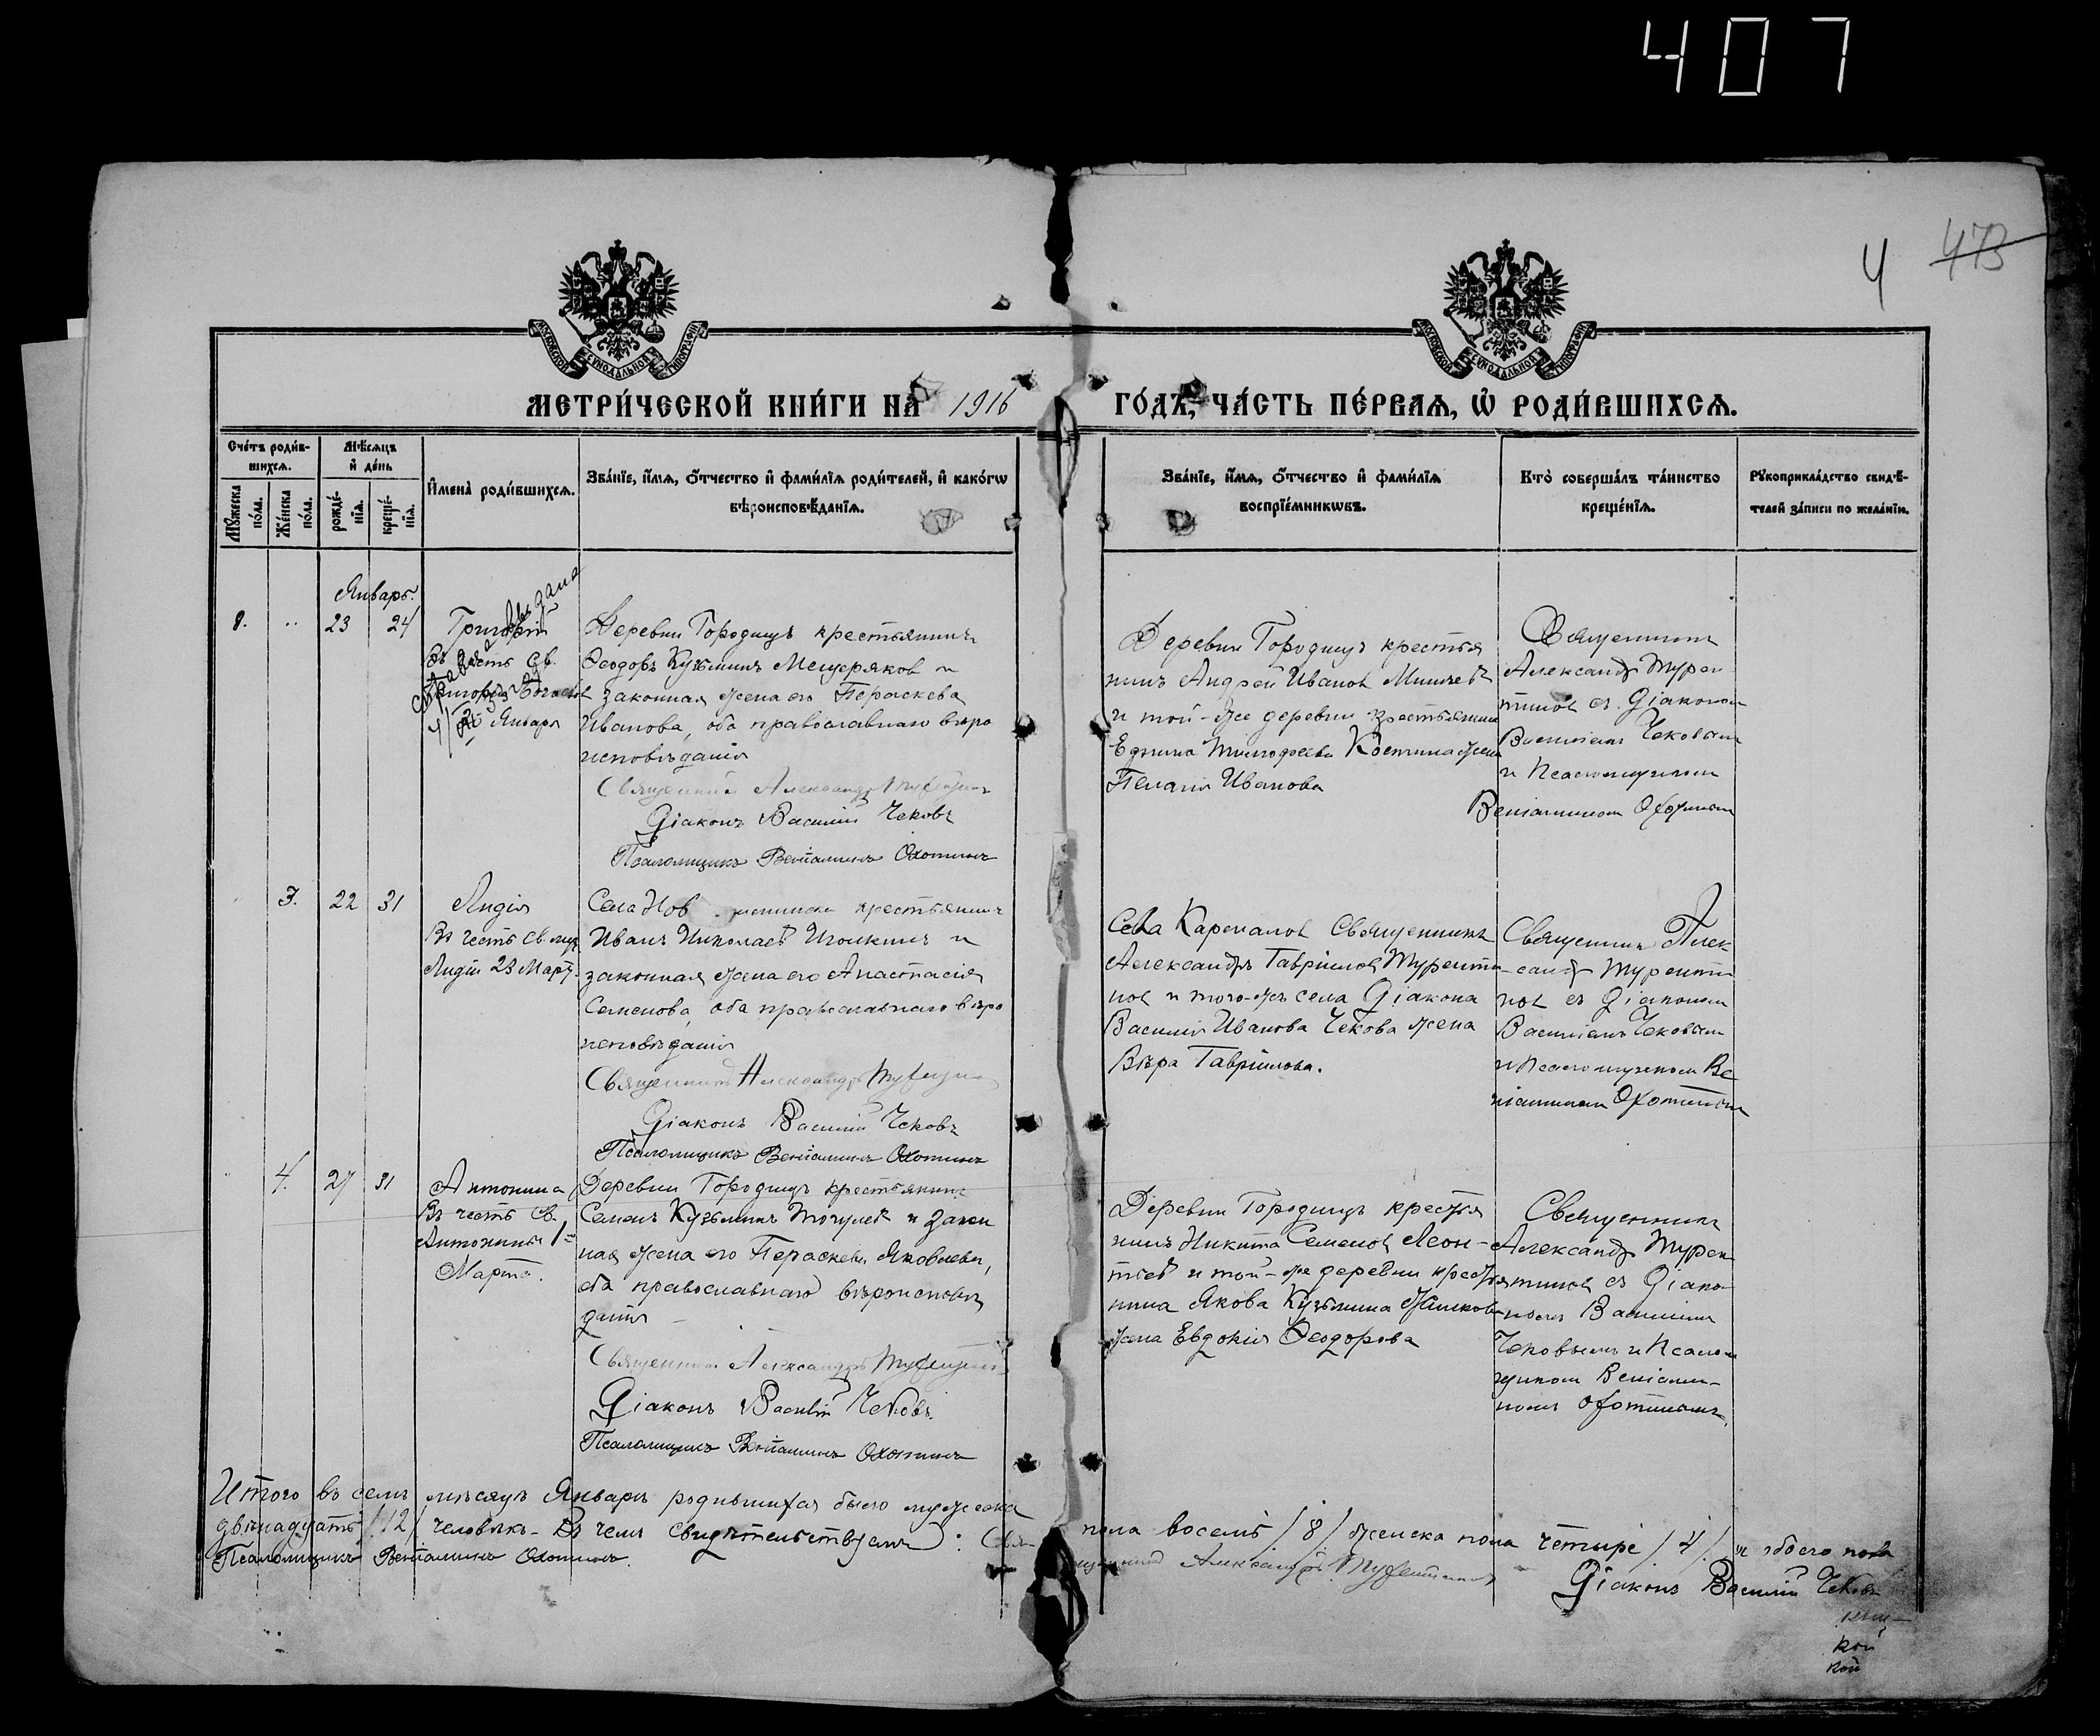 407
4
473
МЕТРИ́ЧЕСКОЙ КНИ́ГИ НА 1916 ГО́ДЪ, ЧА́СТЬ ПЕ́РВАЯ, Ѡ РОДИ́ВШИХСЯ.
Сче́тъ роди́в-
шихся.
Мѣ́сяцъ
и҆ де́нь
Мꙋ́жеска по́ла.
Же́нска по́ла.
рожде́-
нїѧ.
креще́-
нїѧ.
И҆мена̀ роди́вшихся.
Зва́нїе, и҆́мя, ѻ҆́тчество и҆ фами́лїя роди́телей, и҆ како́гѡ
вѣроисповѣ́данїя.
Зва́нїе, и҆́мя, ѻ҆́тчество и҆ фами́лїя
воспрїе́мникѡвъ.
Кто̀ соверша́лъ та́инство
креще́нїя.
Рꙋкоприкла́дство свидѣ́-
телей за́писи по жела́нїю.
Январь.
8. 23 24
Григорій
Въ честь св.
Григорія Богослов
25 Января
Деревни Городищъ крестьянинъ
Ѳеодоръ Кузьминъ Мещеряков и
законная жена его Параскева
Иванова, оба православнаго вѣро
исповѣданія
Священникъ Александръ
Діаконъ Василій Чековъ
Псаломщикъ Веніаминъ Охотинъ
Деревни Городищъ крестья
нинъ Андрей Иванов
и той-же деревни крестьянина
жена
Пелагія Иванова
Священником
Александр
с Діаконом
Василіем Чековым
и Псаломщиком
Веніамином Охотиным
3. 22 31
Лидія
Въ честь св. муч.
Лидіи 23 Март.
Села крестьянинъ
Иванъ Николаев и
законная жена его Анастасія
Семенова, оба православнаго вѣро
исповѣданія
Священникъ Александръ
Діаконъ Василій Чековъ
Псаломщикъ Веніаминъ Охотинъ
Села Священникъ
Александръ Гавріилов
и того-жъ села Діакона
Василія Иванова Чекова жена
Вѣра Гавріилова.
Священник Алек-
сандр
съ Діаконом
Василіем Чековым
и Псаломщиком Ве
ніамином Охотиным
4. 27 31
Антонина
Въ честь св.
Антонины 1-го
Марта.
Деревни Городищъ крестьянинъ
Семенъ Кузьминъ и закон
ная жена его Параскева Яковлева,
оба православнаго вѣроисповѣ
данія
Священникъ Александръ
Діаконъ Василій Чековъ.
Псаломщикъ Веніаминъ Охотинъ
Деревни Городищъ крестья
нинъ Никита Семенов Леон-
тьев и той-же деревни крестья
нина Якова Кузьмина
жена Евдокія Ѳеодорова
Священник
Александр
съ Діако-
ном Василіем
Чековымъ и Псалом
щиком Веніами-
ном Охотинымъ.
Итого въ семъ мѣсяцѣ Январѣ родившихся было мужеска пола восемь /8/ женска пола четыре /4/ и обоего пола
двѣнадцать /12/ человѣкъ. Въ чемъ свидѣтельствуемъ: Священникъ Александръ
Діаконъ Василій Чековъ
Псаломщикъ Веніаминъ Охотинъ.
кой
кой